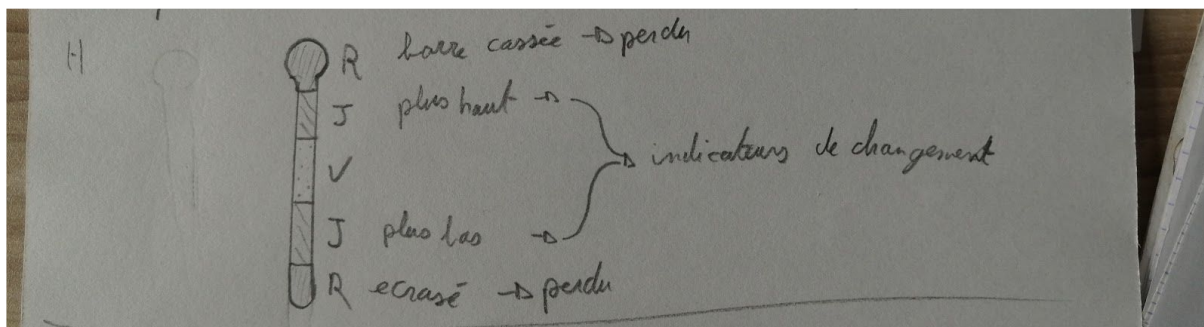 H
R barre cassée → perdu
J plus haut →
indicateurs de changement
V
J plus bas →
R ecrasé → perdu